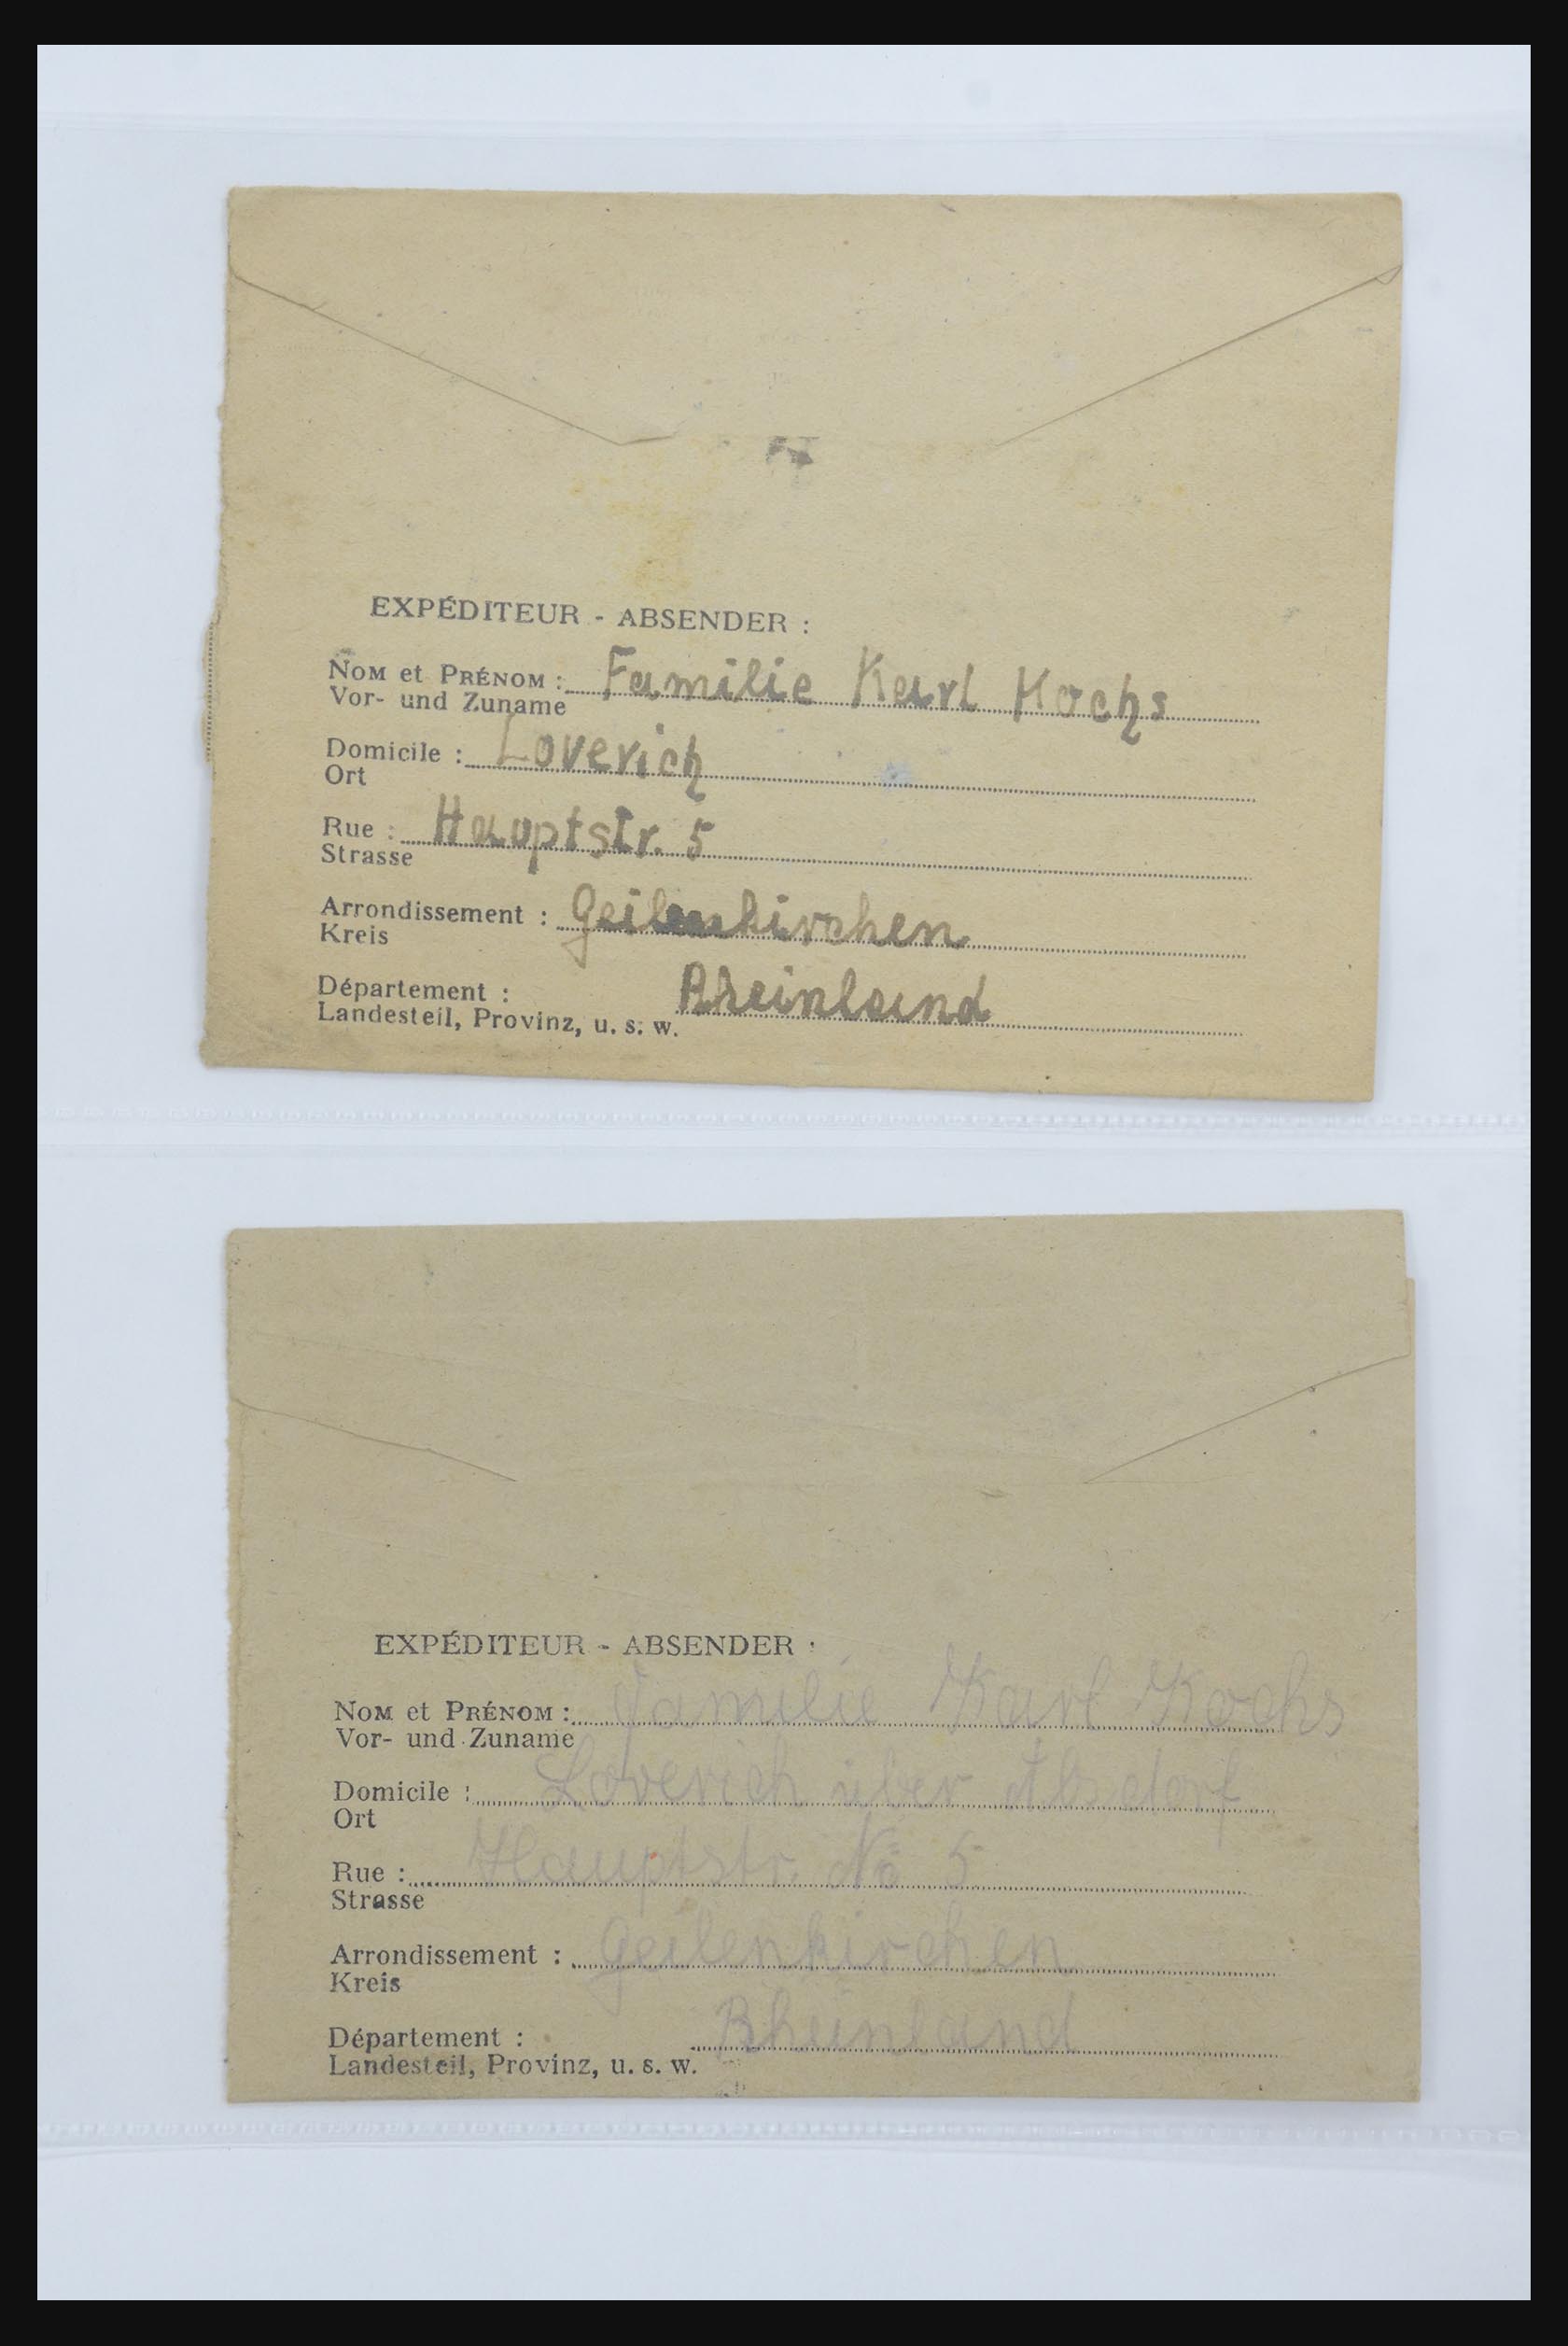 EXPÉDITEUR - ABSENDER :
NOM et PRÉNOM : Familie Karl Kochs
Vor- und Zuname
Domicile : Loverich
Ort
Rue : Hauptstr. 5
Strasse
Arrondissement : Geilenkirchen
Kreis
Département : Rheinland
Landesteil, Provinz, u. s. w.
EXPÉDITEUR - ABSENDER :
NOM et PRÉNOM : Familie Karl Kochs
Vor- und Zuname
Domicile : Loverich über Alsdorf
Ort
Rue : Hauptstr. No 5
Strasse
Arrondissement : Geilenkirchen
Kreis
Département : Rheinland
Landesteil, Provinz, u. s. w.